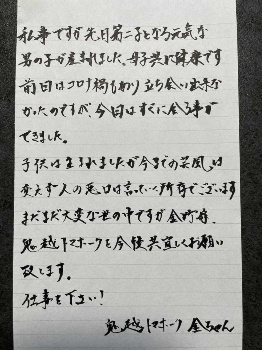 私事ですが先日第二子となる元気な
男の子が産まれました。母子共に健康です
前回はコロナ禍もあり立ち会い出来な
かったのですが、今回はすぐに会う事が
できました。
子供は生まれましたが今までの芸風は
変えず人の悪口は言っていく所存でございます
まだまだ大変な世の中ですが金ちゃん、
鬼越トマホークを今後共宜しくお願い
致します。
仕事を下さい！
鬼越トマホーク 金ちゃん